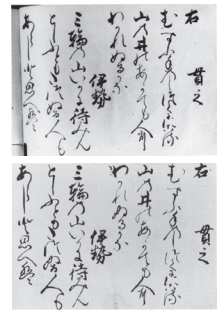 右
貫之
むすふ手のしつくに濁る
山の井のあかても人に
わかれぬる哉
伊勢
三輪の山いかに待みん
としふともたつぬる人も
あらしと思へは
右
貫之
むすふ手のしつくに濁る
山の井のあかても人に
わかれぬる哉
伊勢
三輪の山いかに待みん
としふともたつぬる人も
あらしと思へは